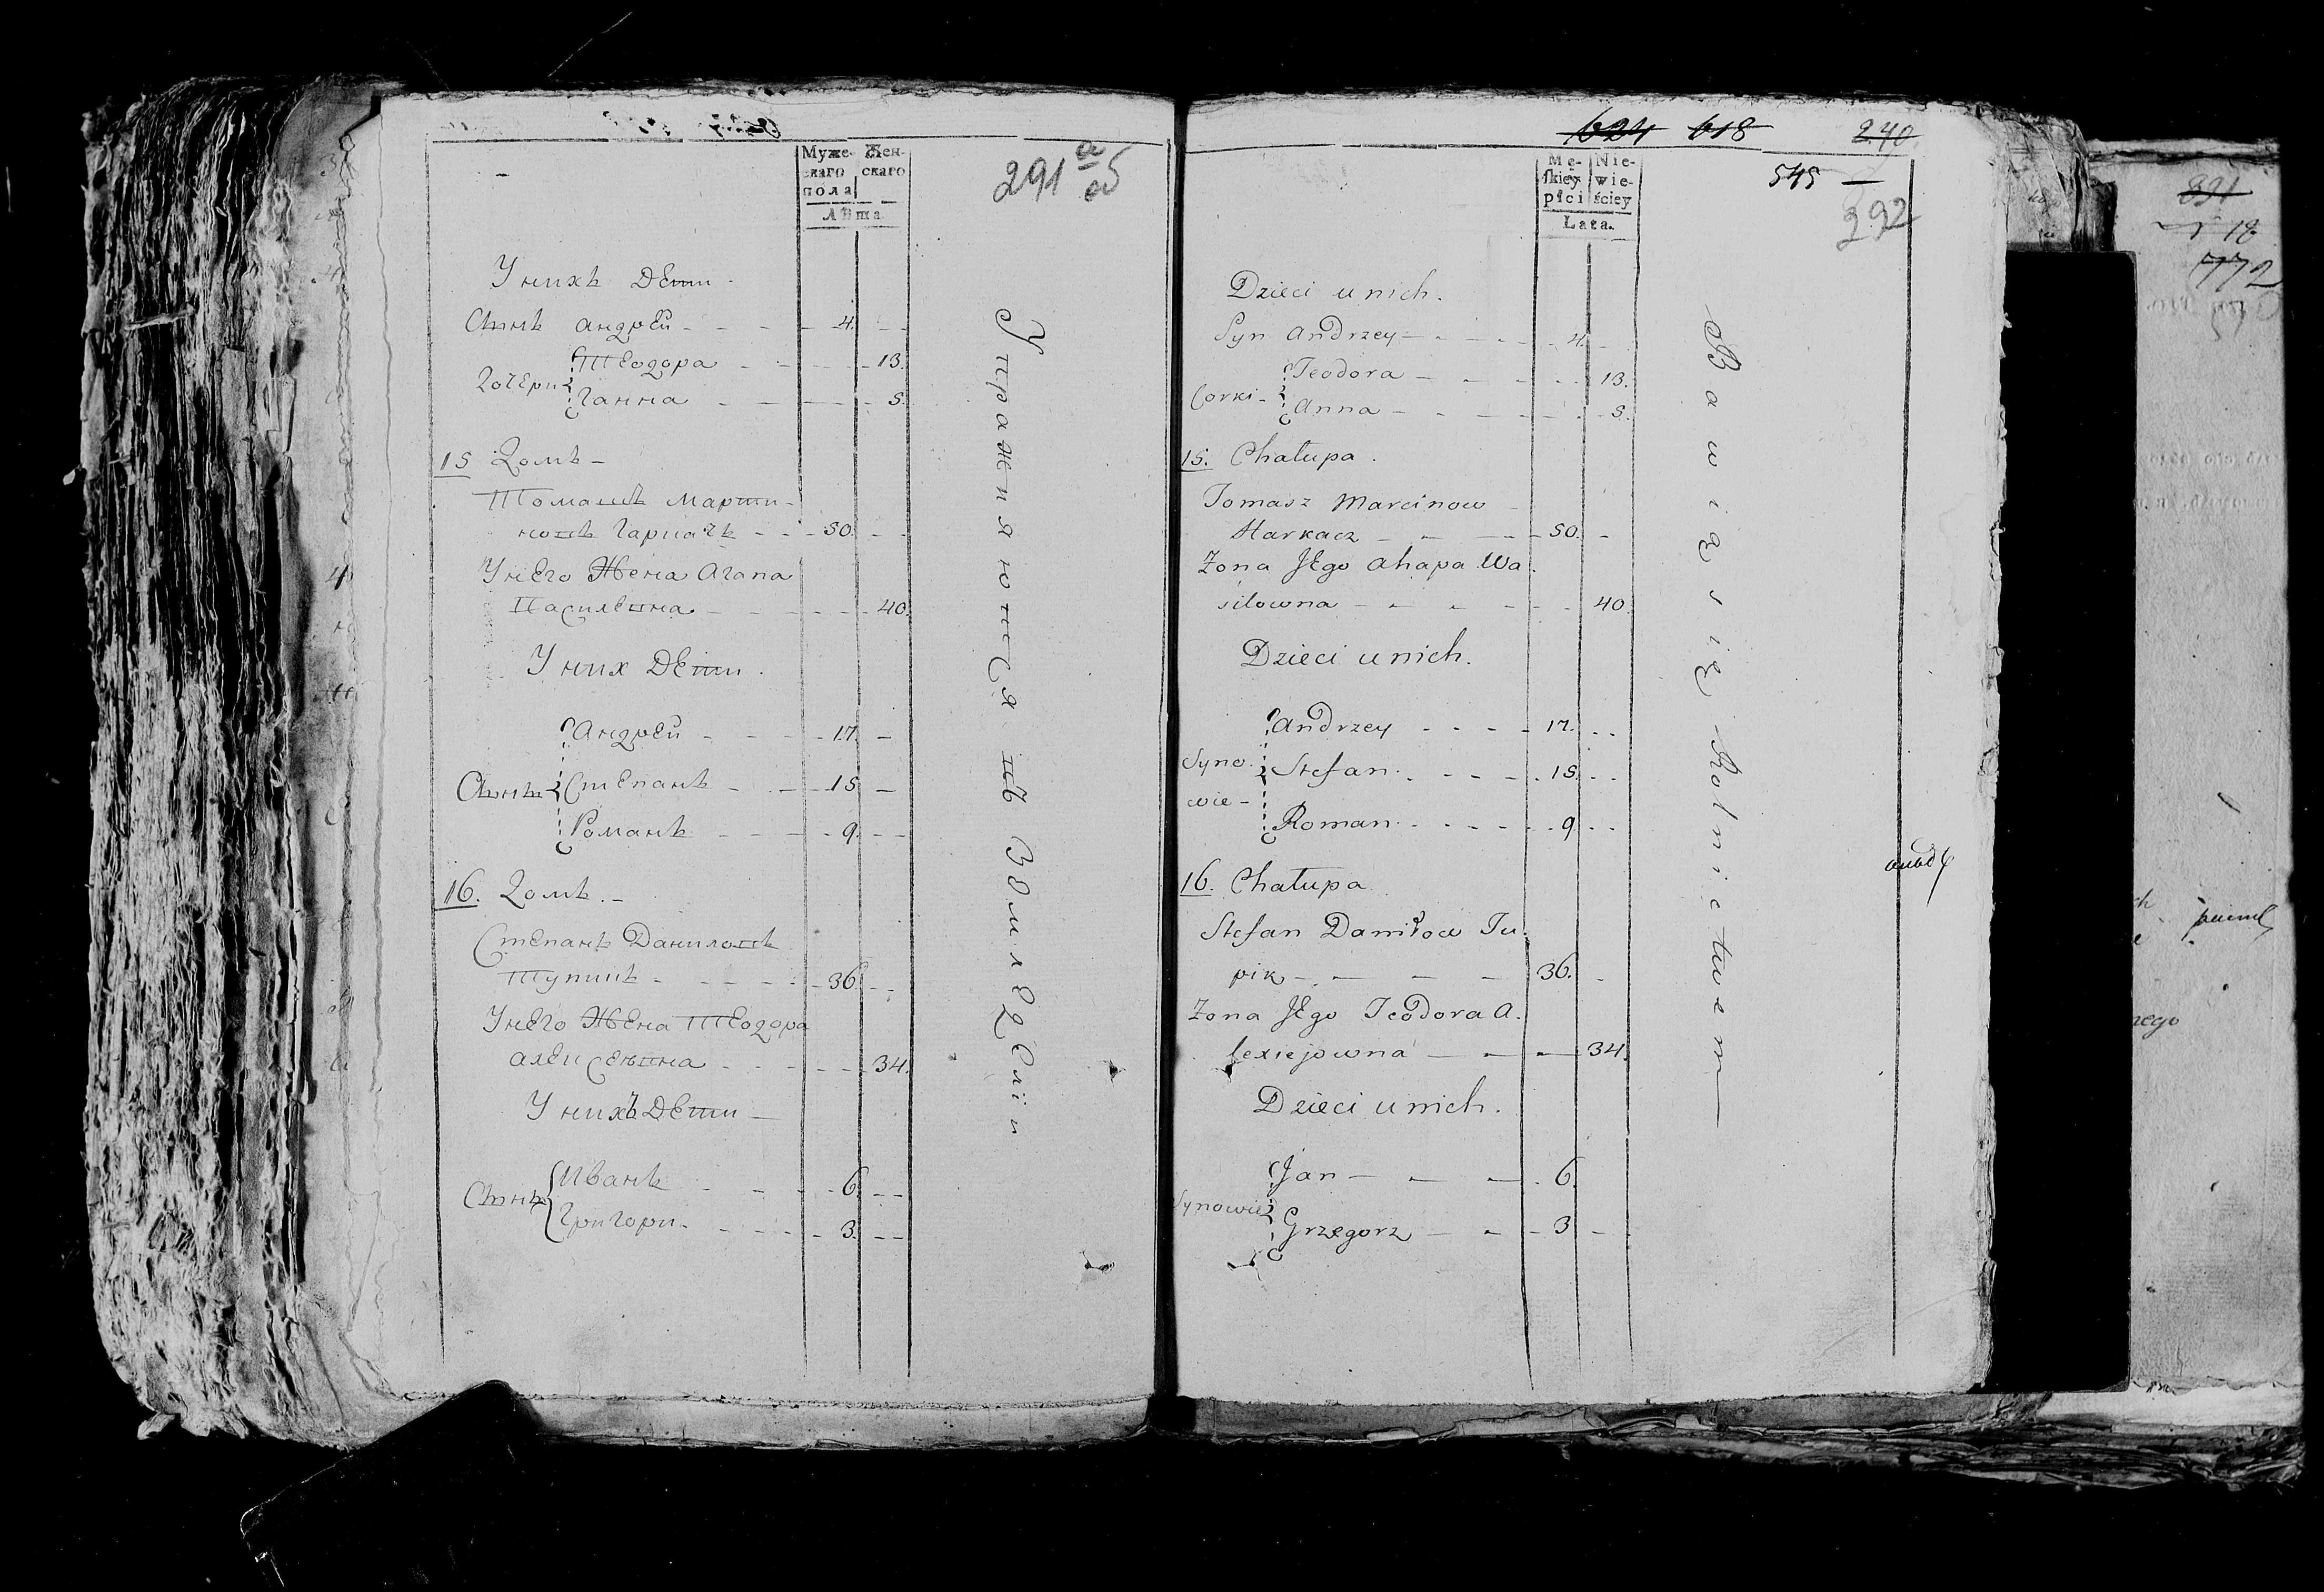 Муже-
скаго
пола
Жен-
скаго
Лѣта.
291 а
об
Унихъ Дети.
Сынъ Андрей - 4.
Дочери
Теодора - 13.
Ганна - 5.
15 Домъ -
Томашъ Марти-
новъ Гаркачъ - 50.
Унего Жена Агапа
Василевна - 40.
Уних Дети.
Сыны
Андрей - 17.
Степанъ - 15
Романъ - 9.
16. Домъ. -
Степанъ Даниловъ
Тупикъ - 36.
Унего Жена Теодора
Алексеевна - 34.
Унихъ Дети -
Сыны
Иванъ - 6.
Григори - 3.
Упражняются въ Земледеліи
624 618 240
Mę-
skiey
płci
Nie-
wie-
ściey
Lata.
545 —
292
Dzieci u nich.
Syn Andrzey - 4.
Corki -
Teodora - 13.
Anna - 5.
15. Chałupa.
Tomasz Marcinow
Harkacz - 50.
Żona Jego Ahapa Wa
silowna - 40.
Dzieci u nich.
Syno-
wie -
Andrzey - 17.
Stefan - 15.
Roman - 9.
16. Chałupa
Stefan Daniłow Tu-
pik - 36.
Żona Jego Teodora A.
lexiejowna - 34.
Dzieci u nich.
Synowie
Jan - 6.
Grzegorz - 3
Bawią się Rolnictwem
831
18
772
nego